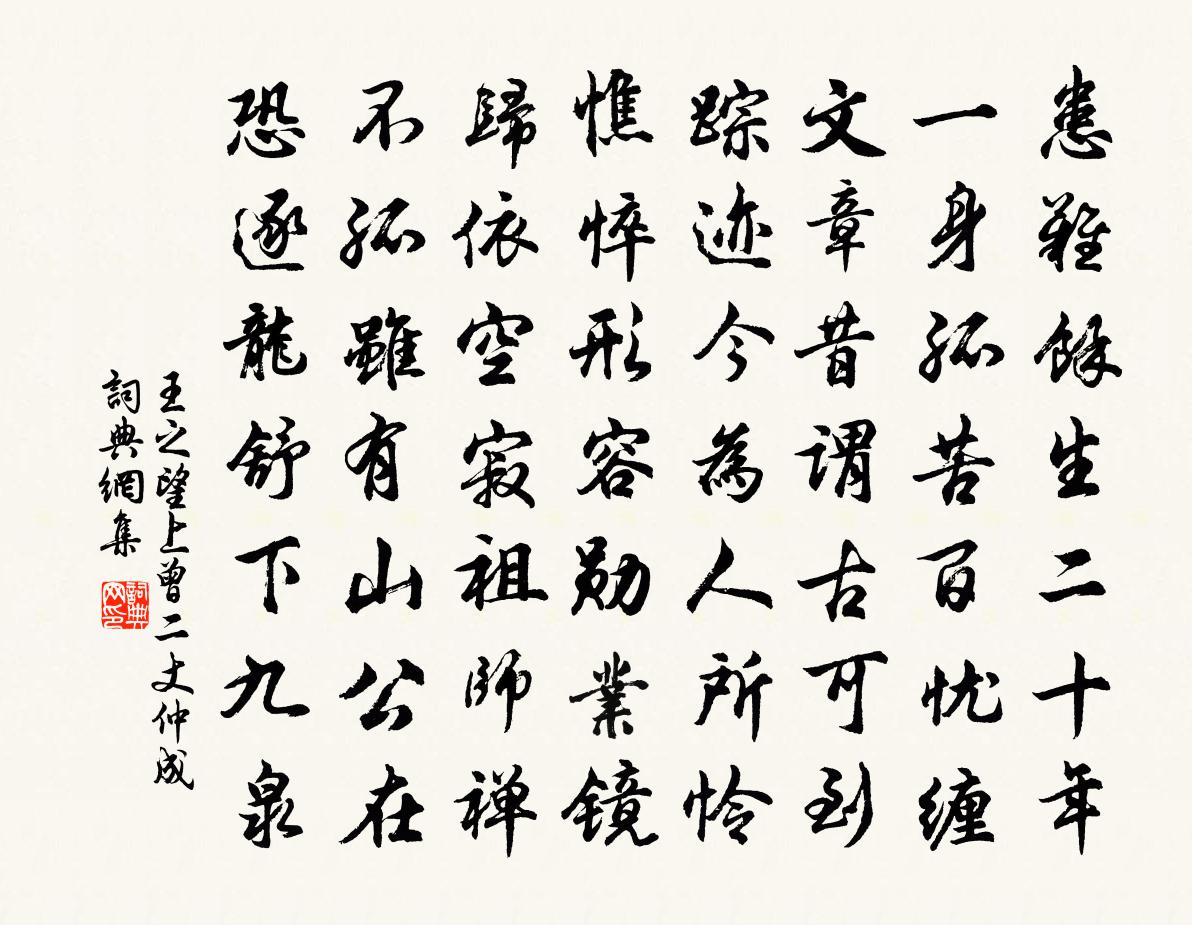 患難餘生二十年
一身孤苦百忧缠
文章昔謂古可到
踪迹今為人所怜
憔悴形容勋業镜
歸依空寂祖師禅
不孤雖有山公在
恐逐龍舒下九泉
王之望上曾二丈仲成
詞典網集
詞典网印